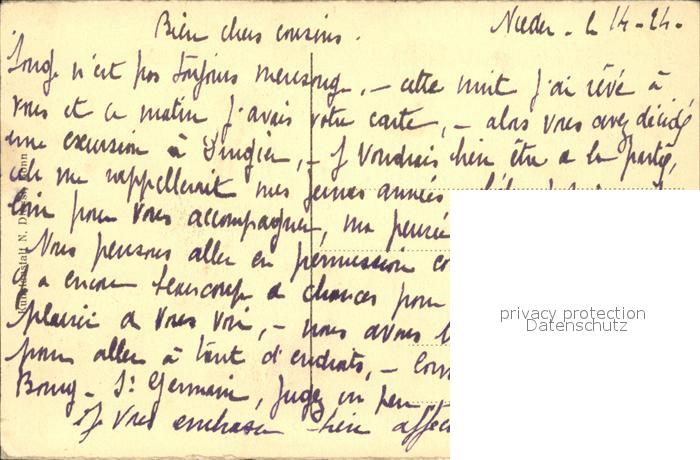 Bien chers cousins.
le 14-24.
Songe n'est pas toujours mensonge, - cette nuit j'ai rêvé à
vous et ce matin j'avais votre carte, - alors vous avez décidé
une excursion à - Je voudrais bien être de la partie,
cela me rappellerait mes jeunes années
loin pour vous accompagner, ma pensée
Nous pensons aller en permission
a encore beaucoup de chances pour
plaisir de vous voir, - nous avons
pour aller à tant d'endroits, -
Bourg - St Germain, jugez un peu
Je vous embrasse bien
privacy protection
Datenschutz